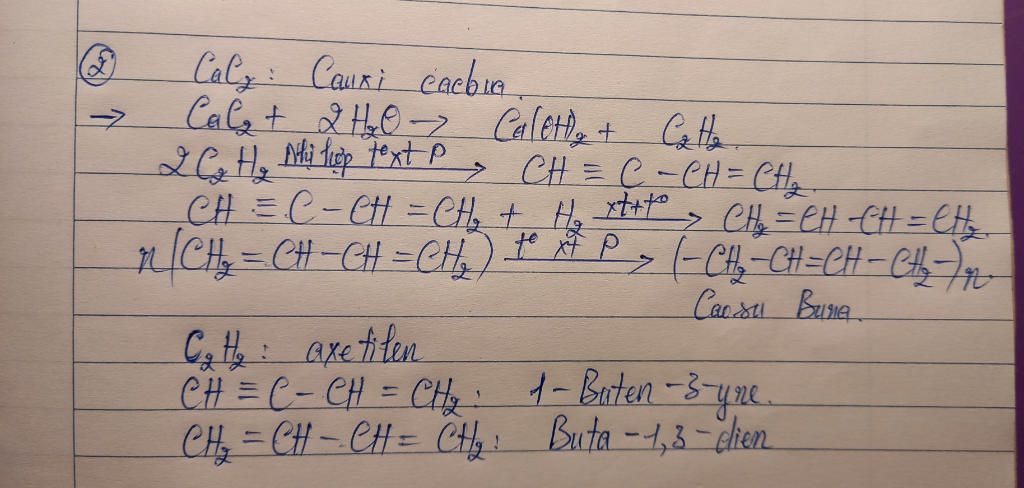 ② CaC₂ : Cauxi cacbua.
→ CaC₂ + 2H₂O → Ca(OH)₂ + C₂H₂.
2C₂H₂ Nhị hợp t° xt P → CH ≡ C – CH = CH₂.
CH ≡ C – CH = CH₂ + H₂ xt + t° → CH₂ = CH – CH = CH₂.
n(CH₂ = CH – CH = CH₂) t° xt P → (– CH₂ – CH = CH – CH₂ –)n.
Cao su Buna.
C₂H₂ : axetilen
CH ≡ C – CH = CH₂ : 1 – Buten – 3 – yne.
CH₂ = CH – CH = CH₂ : Buta – 1,3 – dien